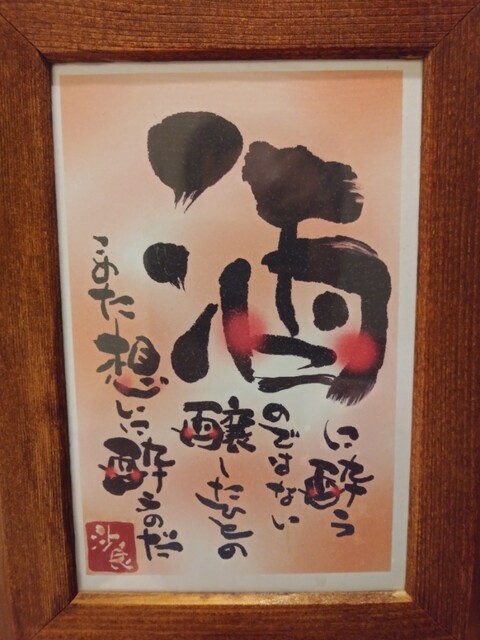 酒
に酔う
のではない
醸したひとの
こめた想いに
酔うのだ
沙良